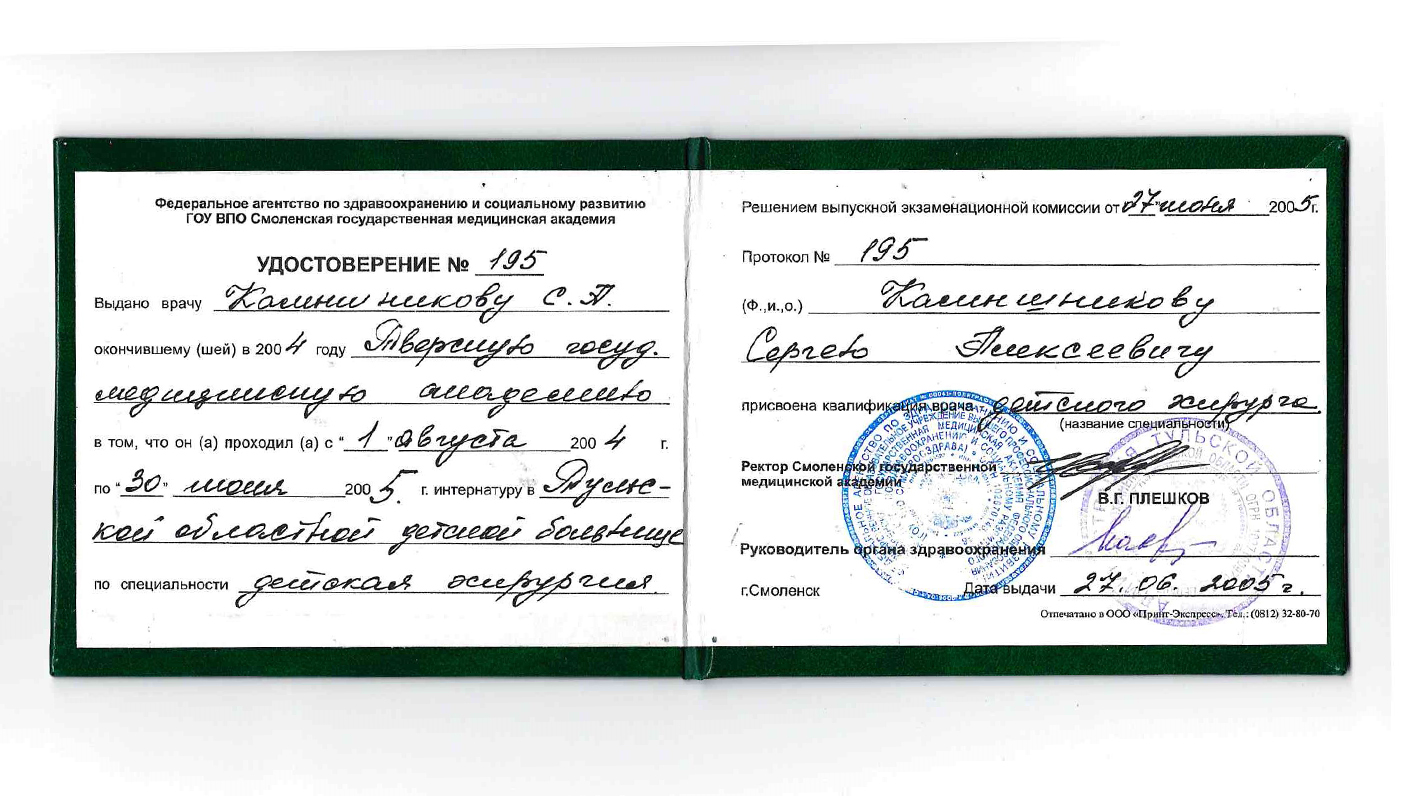 Федеральное агентство по здравоохранению и социальному развитию
ГОУ ВПО Смоленская государственная медицинская академия
УДОСТОВЕРЕНИЕ № 195
Выдано врачу Калашникову С.А.
окончившему (шей) в 2004 году Тверскую госуд.
медицинскую академию
в том, что он (а) проходил (а) с "1" августа 2004 г.
по "30" июня 2005 г. интернатуру в Тульс-
кой областной детской больнице
по специальности детская хирургия.
Решением выпускной экзаменационной комиссии от "27" июня 2005г.
Протокол № 195
(Ф.,и.,о.)
Сергею Алексеевичу
присвоена квалификация врача детского хирурга.
(название специальности)
Ректор Смоленской государственной
медицинской академии
В.Г. ПЛЕШКОВ
Руководитель органа здравоохранения
г.Смоленск Дата выдачи 27.06.2005г.
Отпечатано в ООО «Принт-Экспресс». Тел.: (0812) 32-80-70
ТУЛЬСКОЙ ОБЛАСТ